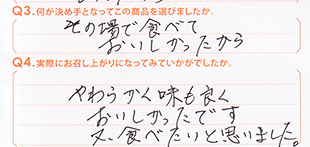 Q3.何が決め手となってこの商品を選びましたか。
その場で食べて
おいしかったから
Q4.実際にお召し上がりになってみていかがでしたか。
やわらかく味も良く
おいしかったです
又、食べたいと思いました。